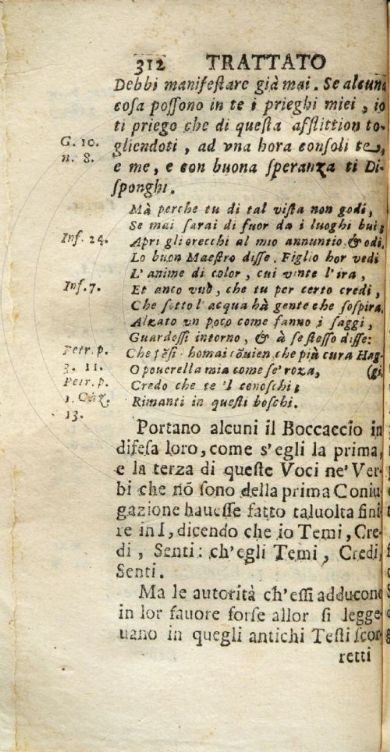 312 TRATTATO
Debbi manifeſtare già mai. Se alcuna
coſa poſſono in te i prieghi miei, io
ti priego che di queſta afflittion to-
G. 10. gliendoti, ad vna hora conſoli te,
n. 8. e me, e con buona ſperanza ti Di-
ſponghi.
Mà perche tu di tal viſta non godi,
Se mai ſarai di fuor da i luoghi bui;
Inf. 24. Apri gli orecchi al mio annuntio & odi.
Lo buon Maeſtro diſſe. Figlio hor vedi
L'anime di color, cui vinſe l'ira,
Inf. 7. Et anco vuò, che tu per certo credi,
Che ſotto l'acqua hà gente che ſoſpira.
Alzato vn poco come fanno i ſaggi,
Guardoſſi intorno, & à ſe ſteſſo diſſe:
Petr. p. Che homai che più cura Hag-
3. 11. O pouerella mia come ſe' roza, (gi.
Petr. p. Credo che te 'l conoſchi;
1. Rimanti in queſti boſchi.
13.
Portano alcuni il Boccaccio in
difeſa loro, come s'egli la prima,
e la terza di queſte Voci ne' Ver-
bi che nõ ſono della prima Coniu
gazione haueſſe fatto taluolta fini
re in I, dicendo che io Temi, Cre-
di, Senti: ch'egli Temi, Credi,
Senti.
Ma le autorità ch'eſſi adducono
in lor fauore forſe allor ſi legge-
uano in quegli antichi Teſti ſcor-
retti